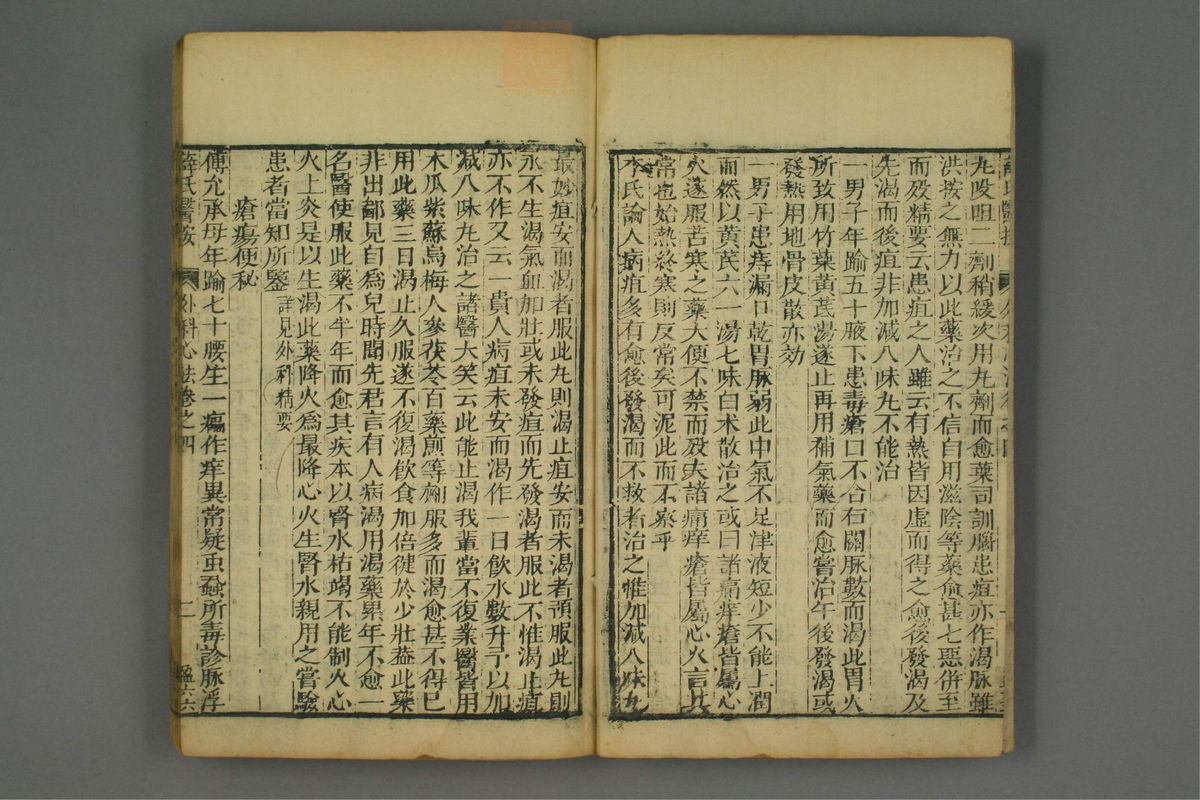 丸㕮咀二劑稍緩次用丸劑而愈葉司訓腦患疽亦作渴脉雖
洪按之無力以此藥治之不信自用滋陰等藥愈甚七惡併至
而歿精要云患疽之人雖云有熱皆因虛而得之愈後發渴及
先渴而後疽非加減八味丸不能治
一男子年踰五十腋下患毒瘡口不合右關脉數而渴此胃火
所致用竹葉黃芪湯遂止再用補氣藥而愈嘗治午後發渴或
發熱用地骨皮散亦効
一男子患痔漏口乾胃脉弱此中氣不足津液短少不能上潤
而然以黃芪六一湯七味白术散治之或曰諸痛痒瘡皆屬心
火遂服苦寒之藥大便不禁而歿夫諸痛痒瘡皆屬心火言其
常也始熱終寒則反常矣可泥此而不察乎
李氏論人病疽多有愈後發渴而不救者治之惟加減八味丸
最妙疽安而渴者服此丸則渴止疽安而未渴者預服此丸則
永不生渴氣血加壯或未發疽而先發渴者服此不惟渴止疽
亦不作又云一貴人病疽未安而渴作一日飲水數升予以加
減八味丸治之諸醫大笑云此能止渴我輩當不復業醫皆用
木瓜紫蘇烏梅人參茯苓百藥煎等劑服多而渴愈甚不得已
用此藥三日渴止久服遂不復渴飲食加倍徤於少壯葢此藥
非出鄙見自為兒時聞先君言有人病渴用渴藥累年不愈一
名醫使服此藥不半年而愈其疾本以腎水枯竭不能制火心
火上炎是以生渴此藥降火爲最降心火生腎水親用之嘗驗
患者當知所鑒詳見外科精要
瘡瘍便秘
傅允承母年踰七十腰生一瘟作痒異常疑虫蝨所毒診脉浮
薛氏醫按 外科心法卷之四 二 盈六六